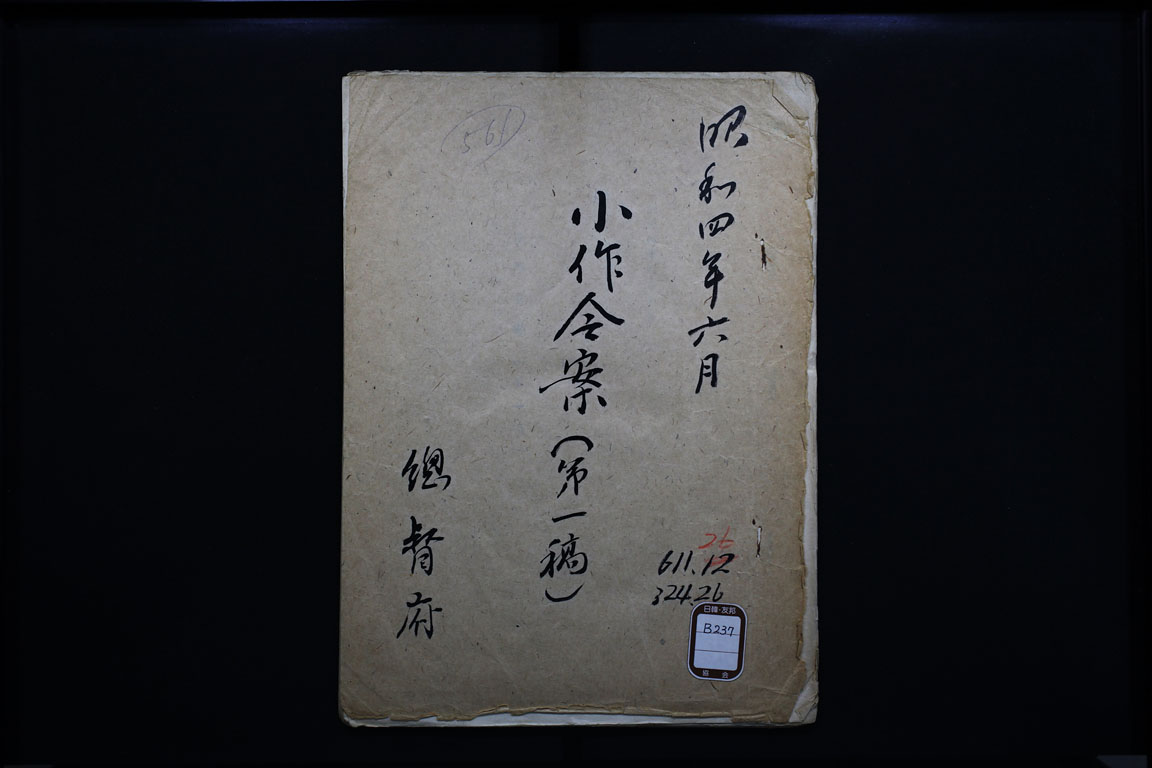 昭和四年六月
小作令案（第一稿）
總督府
561
26
611.12
324.26
日韓・友邦
B237
協会